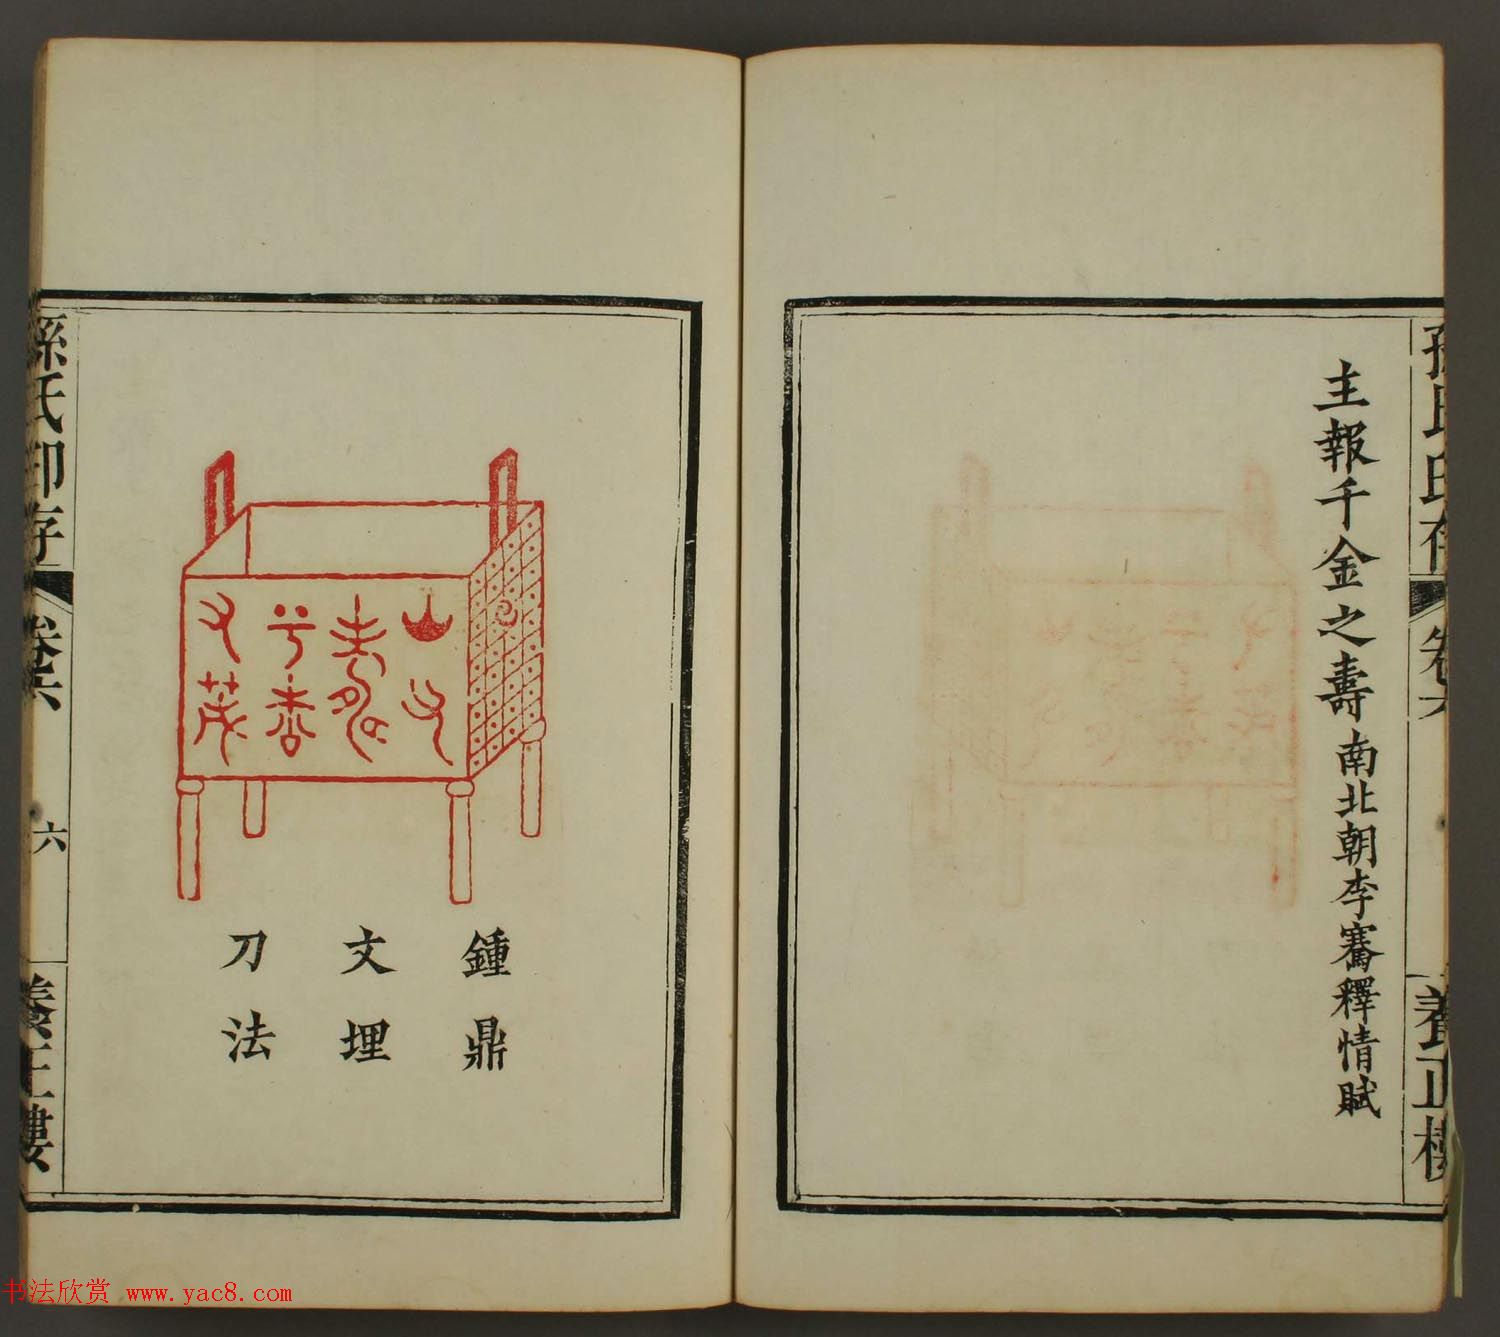 孫氏印存
卷六
養正樓
主報千金之壽南北朝李騫釋情賦
鍾鼎
文埋
刀法
孫氏印存
卷六
六
養正樓
书法欣赏 www.yac8.com